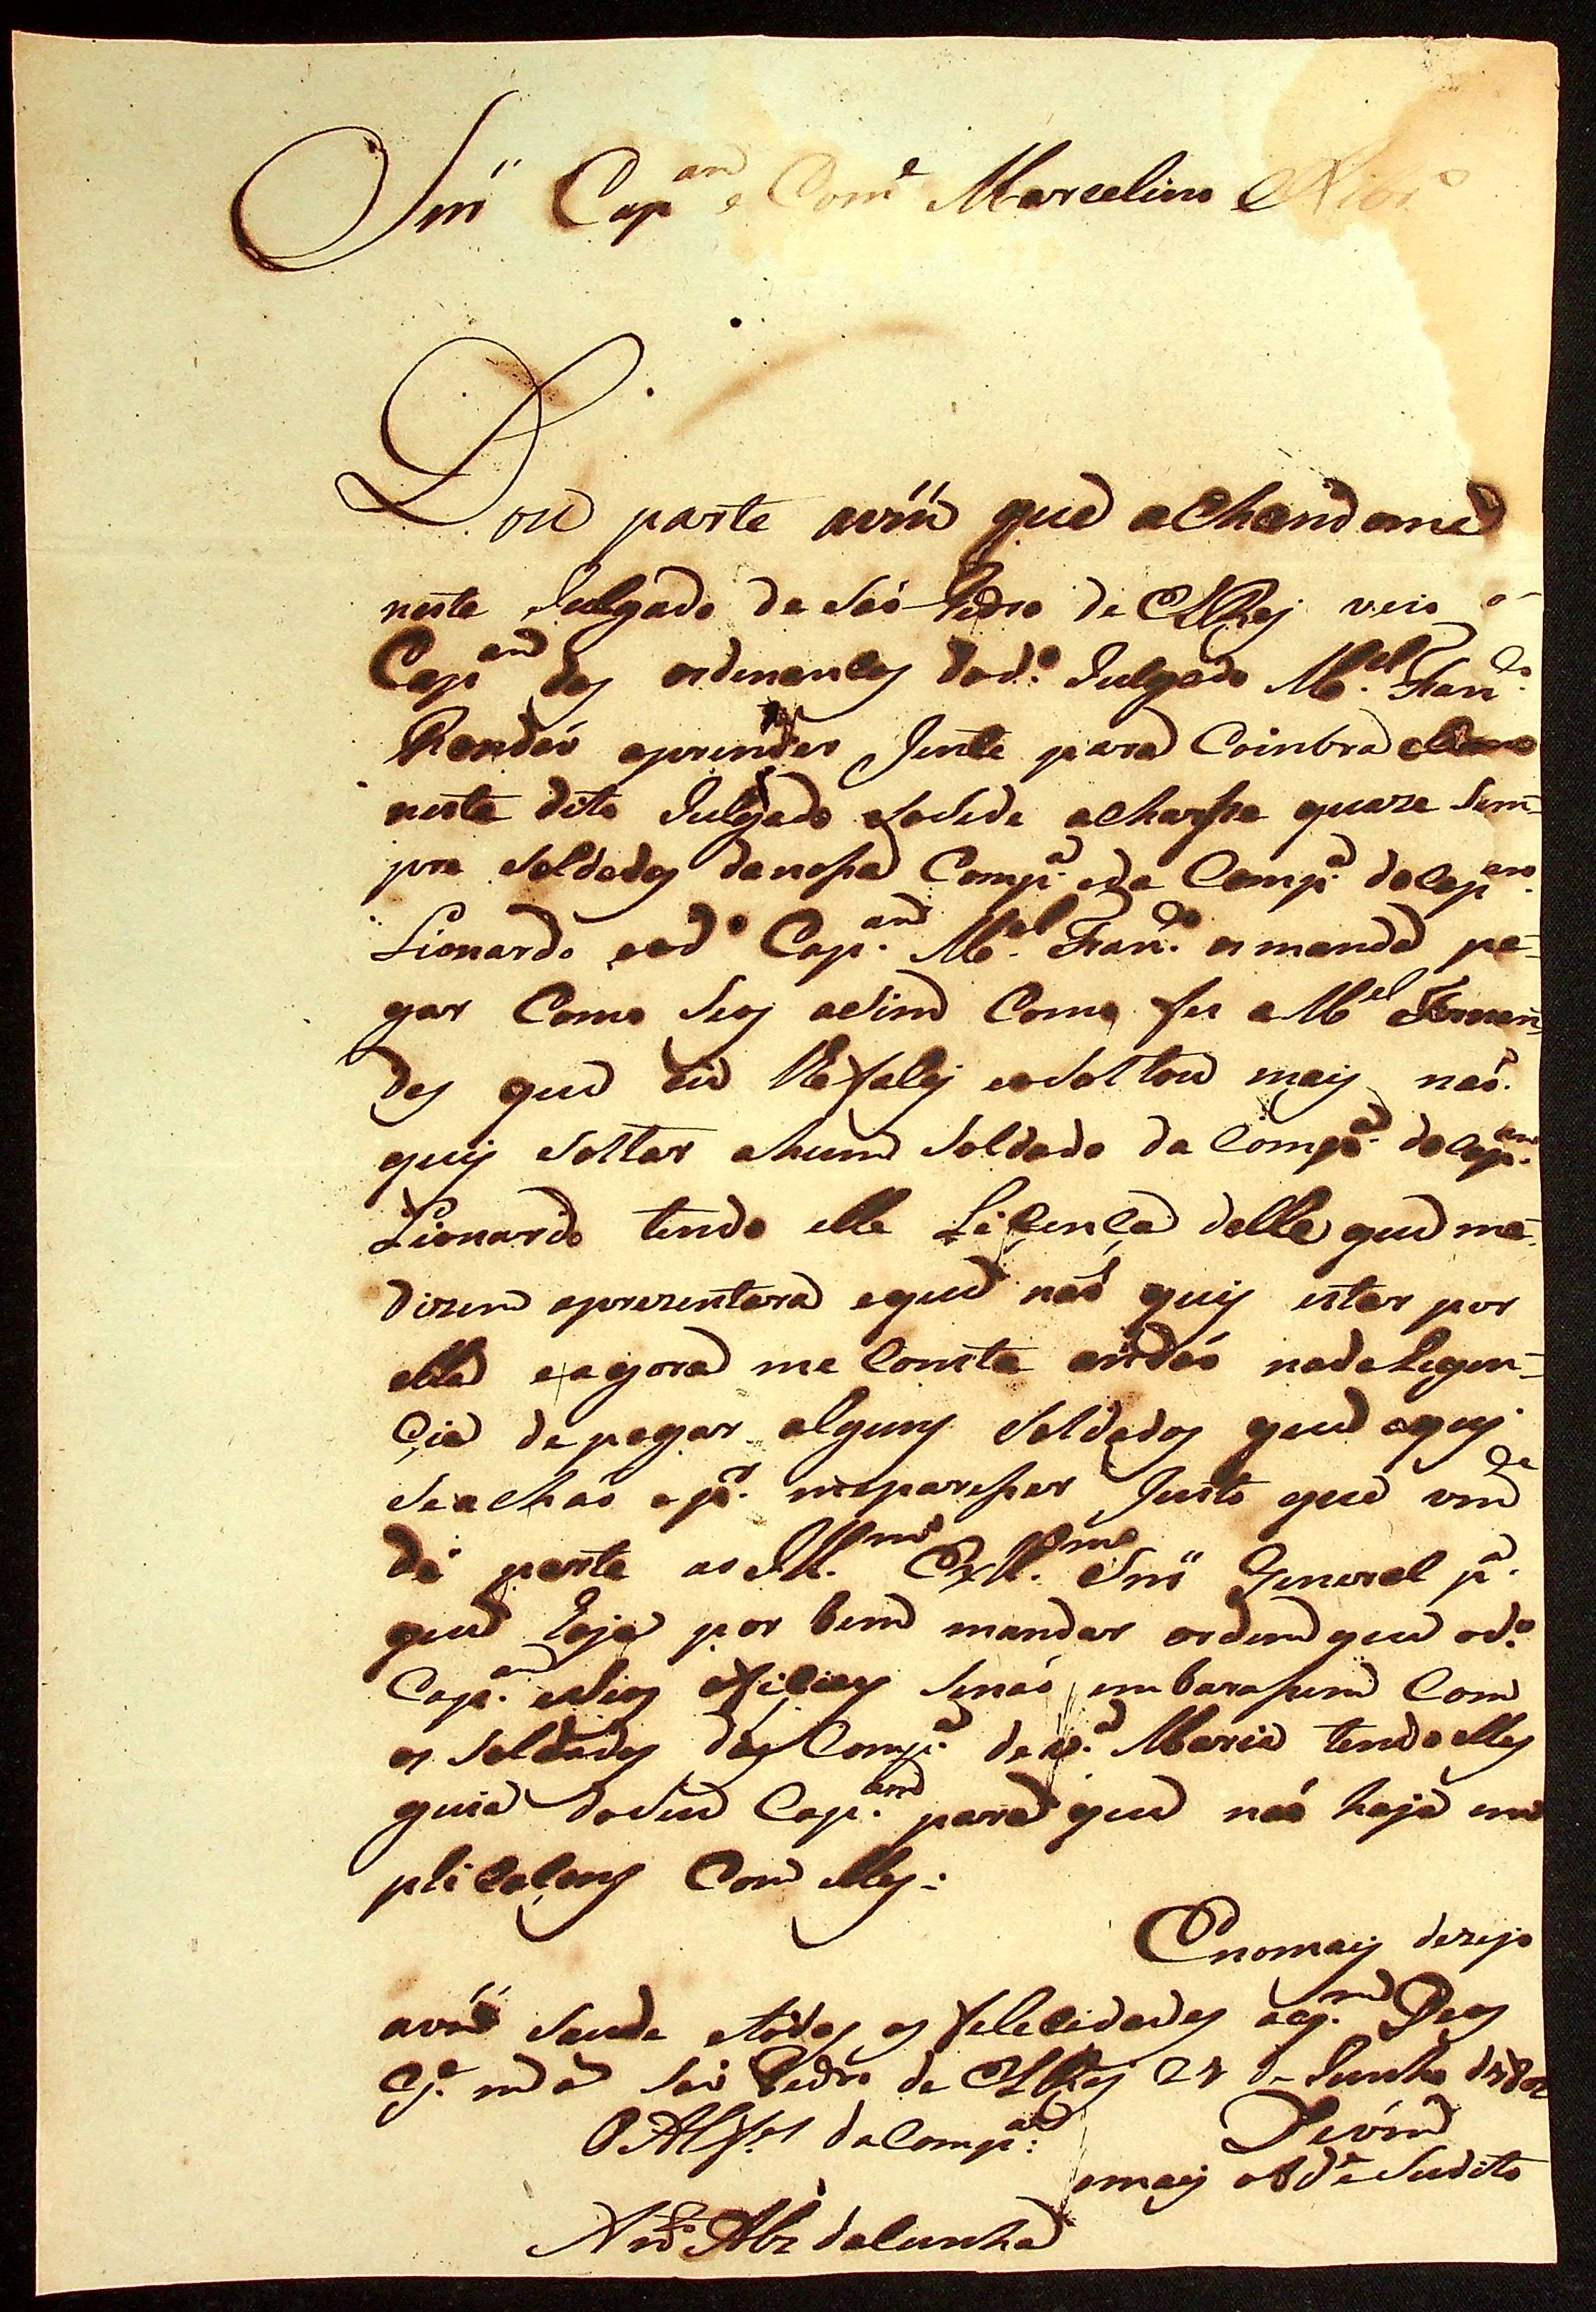 Snr̃ Cap.am e Com.e Marcelino Ribr.o
Dou parte avm̃ que achandome
neste Julgado de São Pedro de ElRej veio o
Cap.am das ordenancas dod.º Julgado M.el Fran.co
Rondaó aprender Jente para Coinbra
neste dito Julgado eSosede acharsse quaze Sem-
pre Soldados danossa Comp.a eda Comp.a docap.am
Lionardo eod.º Cap.am M.el Fran.co os manda pe-
gar Como Seos aSim Como fes a M.el Fernan-
des que eu lhe falej eoSoltou mais naó
quis Soltar ahum Soldado da Comp.a docap.am
Lionardo tendo elle Liçença delle que me
dizem aprezentara eque naó quis estar por
ella eagora me Consta andaó nadeligen-
çia depegar alguns Soldados que aquj
Seachaó ep.r meparesser Justo que vm.ce
dê parte ao Ill.mo Ex.mo Snr̃ General p.a
que haja por bem mandar ordem que od.º
Cap.am eSeos ofiçiaes Senaó embarassem Com
os Soldados das Comp.a de V.a Maria tendo elles
guia doSeu Cap.am para que naó haja im
plicaçons Com elles:
Enomais dezejo
avm̃ Saude etodas as felecidades aq.m Deos
G.e m.s a.s Saó Pedro de ElRej 27 de Junho d1802
O Alf.es daComp.a
DeVm.ce
omais obd.e Sudito
Ant.º Alz daCunha